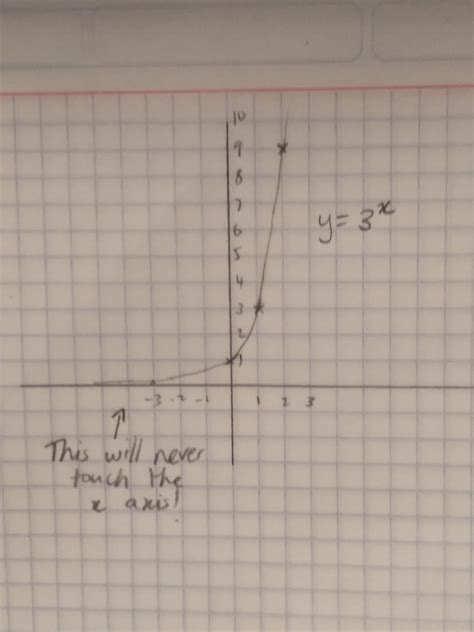 10
9
8
7
y = 3ˣ
6
5
4
3
2
1
-3 -2 -1 1 2 3
This will never
touch the
x axis!